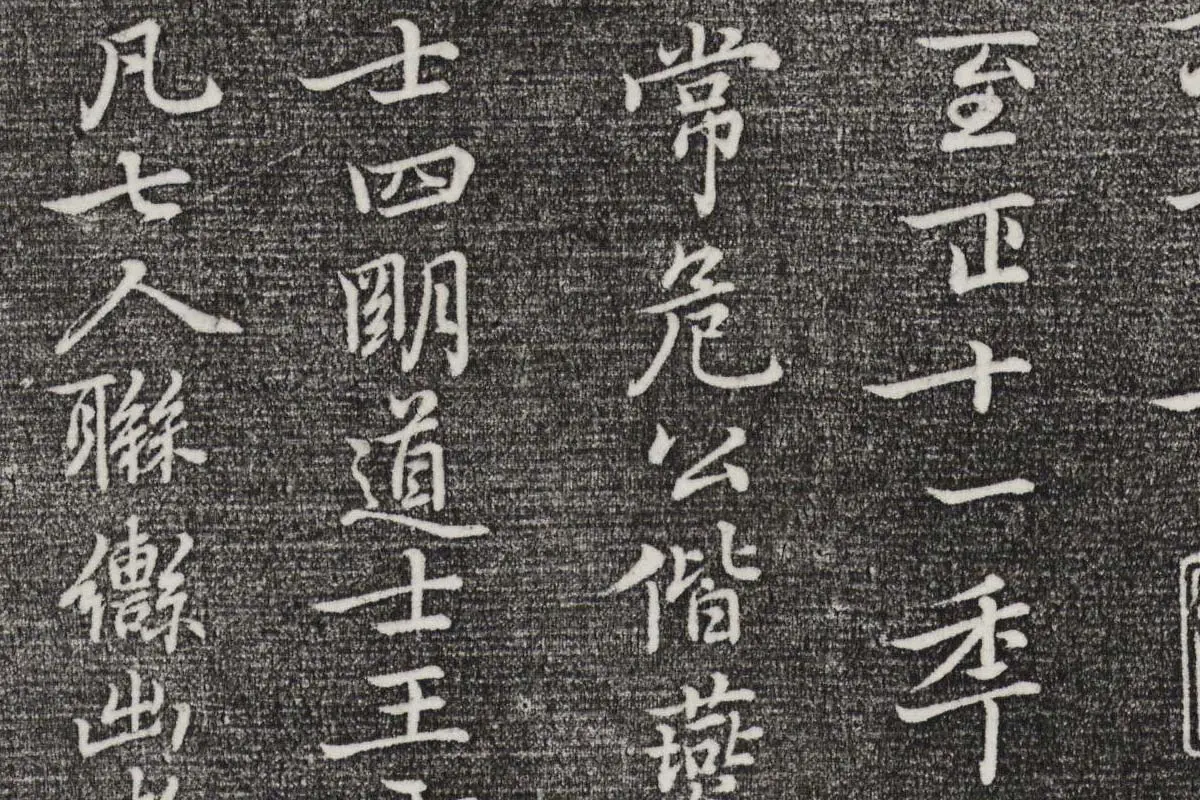 至正十一秊
常危公偕燕
士四明道士王
凡七人聯轡出